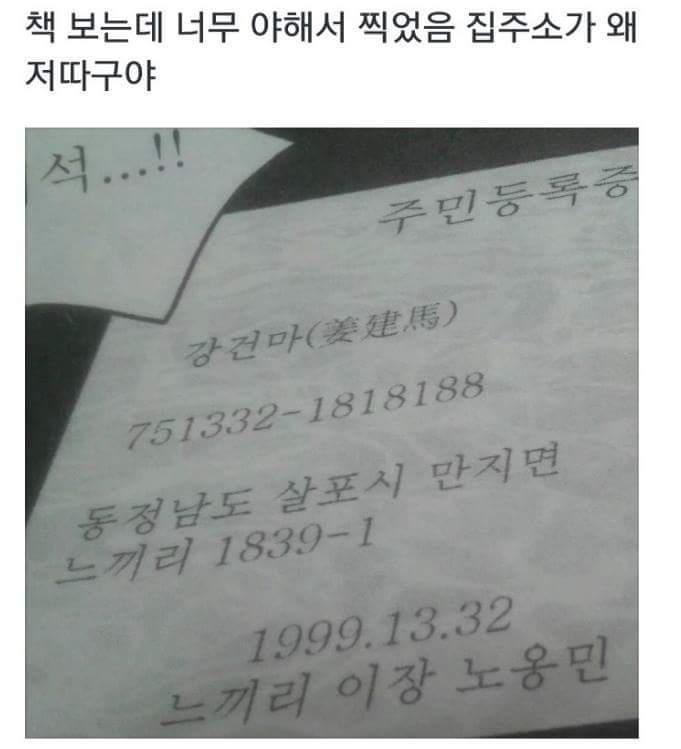 책 보는데 너무 야해서 찍었음 집주소가 왜
저따구야
석...!!
주민등록증
강건마(姜建馬)
751332-1818188
동정남도 살포시 만지면
느끼리 1839-1
1999.13.32
느끼리 이장 노옹민